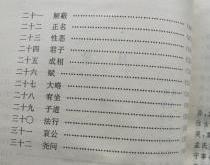 二十一 解蔽
二十二 正名
二十三 性恶
二十四 君子
二十五 成相
二十六 赋
二十七 大略
二十八 宥坐
二十九 子道
三十〇 法行
三十一 哀公
三十二 尧问